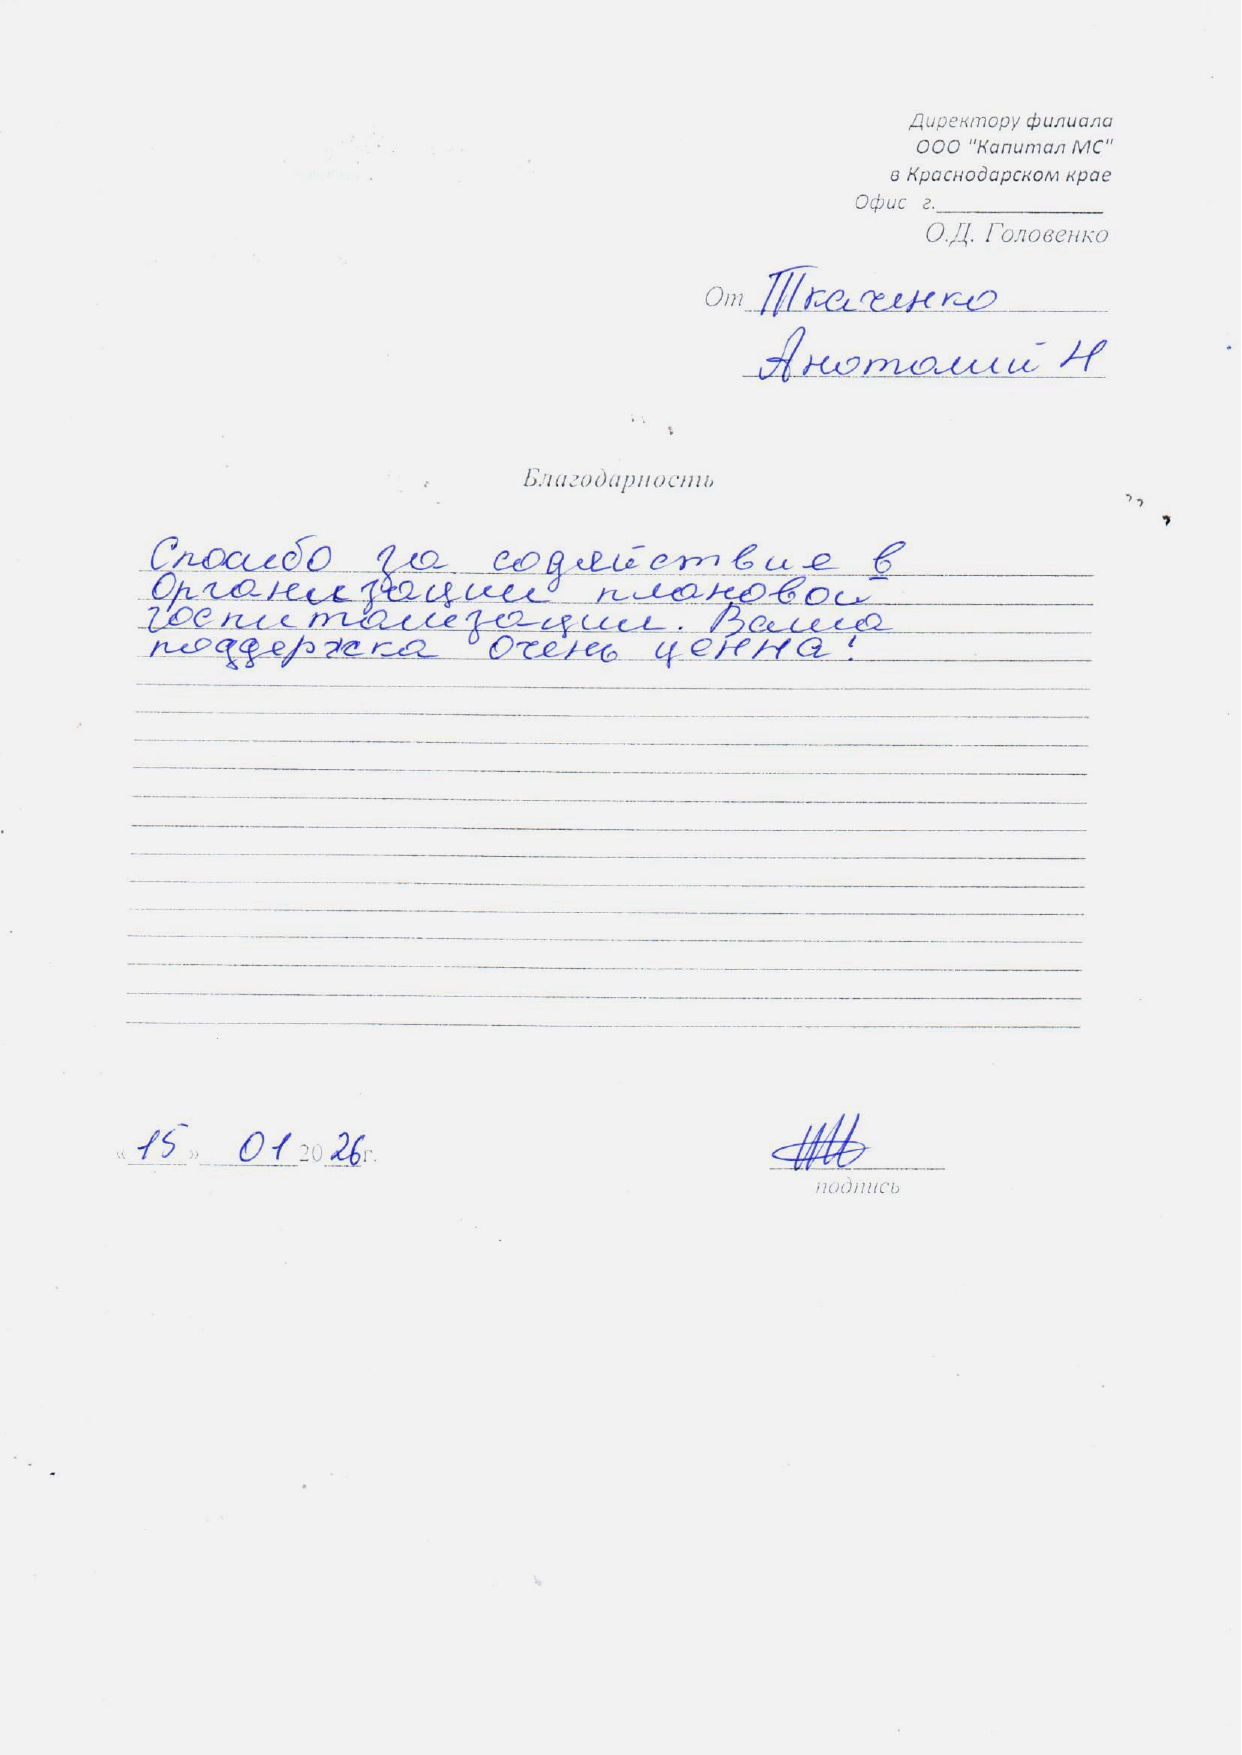 Директору филиала
ООО "Капитал МС"
в Краснодарском крае
Офис г.______________
О.Д. Головенко
От Ткаченко
Анатолий Н
Благодарность
Спасибо за содействие в
организации плановой
госпитализации. Ваша
поддержка очень ценна!
« 15 » 01 20 26 г.
подпись